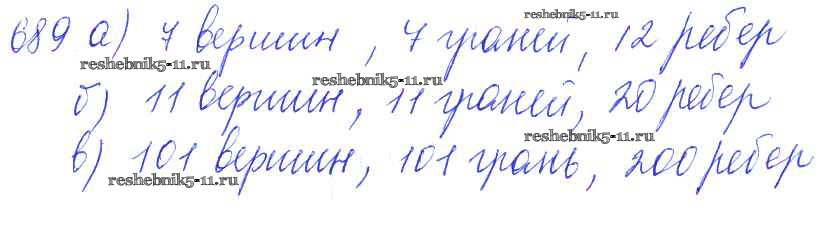 reshebnik5-11.ru
689 а) 7 вершин, 7 граней, 12 ребер
reshebnik5-11.ru
reshebnik5-11.ru
б) 11 вершин, 11 граней, 20 ребер
reshebnik5-11.ru
в) 101 вершин, 101 грань, 200 ребер
reshebnik5-11.ru